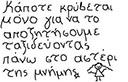 κάποτε κρύβεται
μόνο για να το
αποζητήσουμε
ταξιδεύοντας
πάνω στο αστέρι
της μνήμης